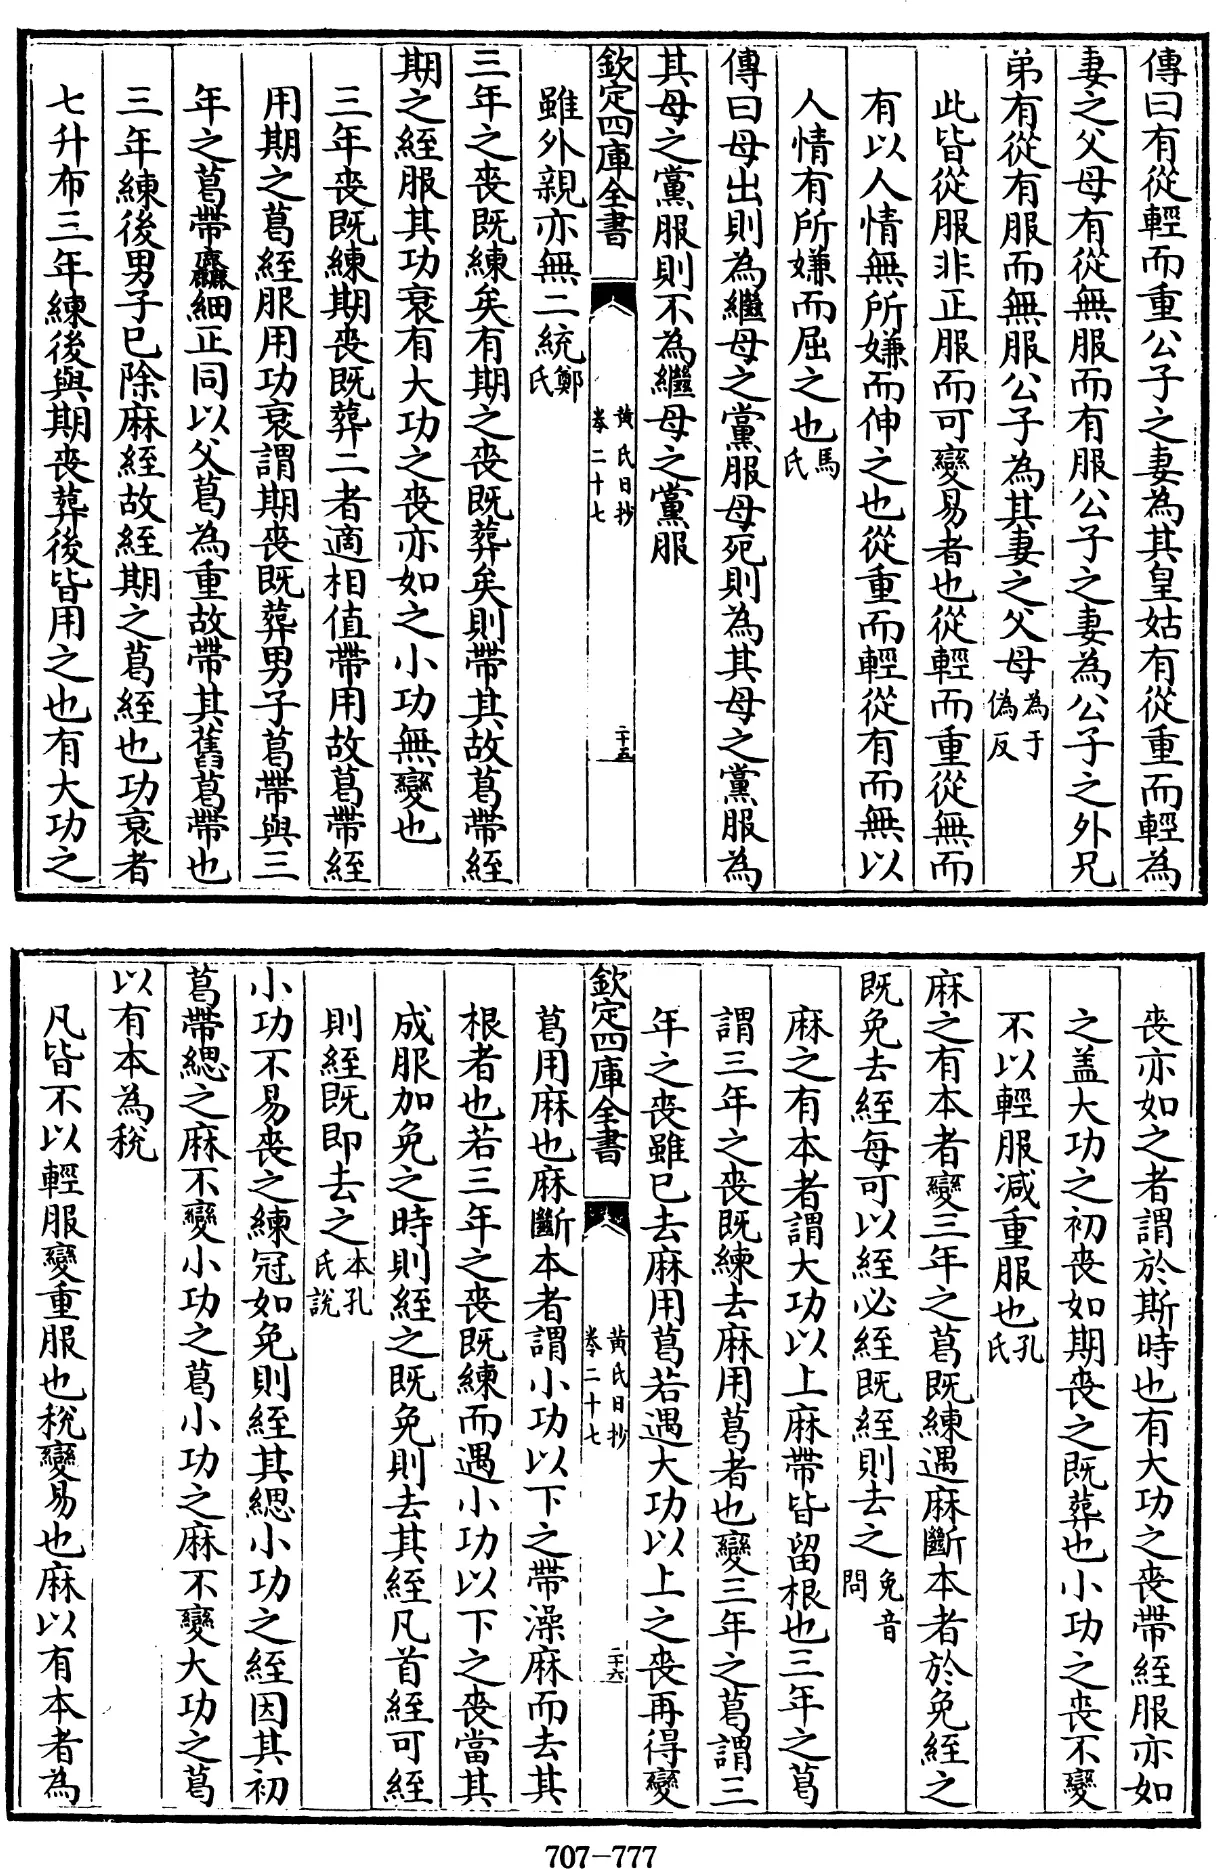 傳曰有從輕而重公子之妻為其皇姑有從重而輕為
妻之父母有從無服而有服公子之妻為公子之外兄
弟有從有服而無服公子為其妻之父母為于偽反
此皆從服非正服而可變易者也從輕而重從無而
有以人情無所嫌而伸之也從重而輕從有而無以
人情有所嫌而屈之也馬氏
傳曰母出則為繼母之黨服母死則為其母之黨服為
其母之黨服則不為繼母之黨服
欽定四庫全書 黃氏日抄 卷二十七 二十五
雖外親亦無二統鄭氏
三年之喪既練矣有期之喪既葬矣則帶其故葛帶絰
期之絰服其功衰有大功之喪亦如之小功無變也
三年喪既練期喪既葬二者適相值帶用故葛帶絰
用期之葛絰服用功衰謂期喪既葬男子葛帶與三
年之葛帶麤細正同以父葛為重故帶其舊葛帶也
三年練後男子已除麻絰故絰期之葛絰也功衰者
七升布三年練後與期喪葬後皆用之也有大功之
喪亦如之者謂於斯時也有大功之喪帶絰服亦如
之盖大功之初喪如期喪之既葬也小功之喪不變
不以輕服減重服也孔氏
麻之有本者變三年之葛既練遇麻斷本者於免絰之
既免去絰每可以絰必絰既絰則去之免音問
麻之有本者謂大功以上麻帶皆留根也三年之葛
謂三年之喪既練去麻用葛者也變三年之葛謂三
年之喪雖已去麻用葛若遇大功以上之喪再得變
欽定四庫全書 黃氏日抄 卷二十七 二十六
葛用麻也麻斷本者謂小功以下之帶澡麻而去其
根者也若三年之喪既練而遇小功以下之喪當其
成服加免之時則絰之既免則去其絰凡首絰可絰
則絰既即去之本孔氏說
小功不易喪之練冠如免則絰其緦小功之絰因其初
葛帶緦之麻不變小功之葛小功之麻不變大功之葛
以有本為稅
凡皆不以輕服變重服也稅變易也麻以有本者為
707-777